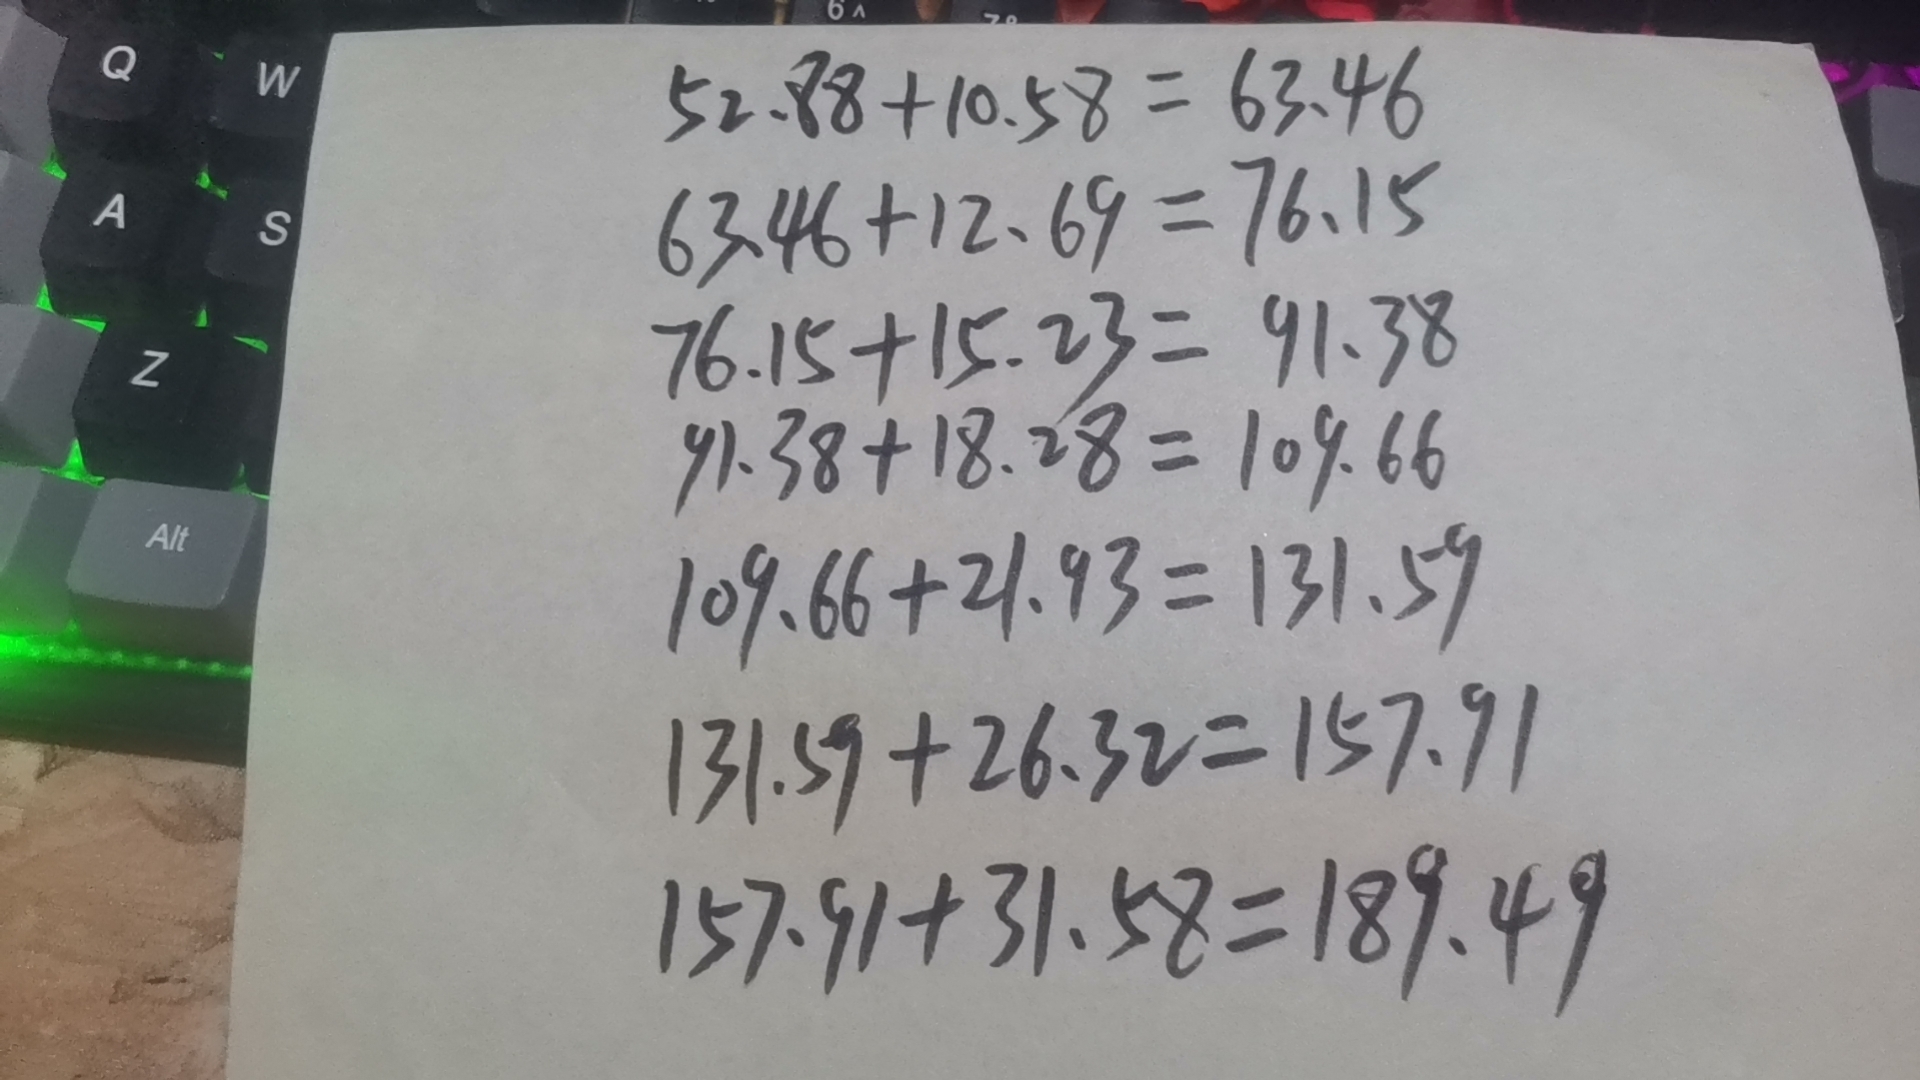 6 ^
Q W
52.88+10.58=63.46
63.46+12.69=76.15
A S
76.15+15.23=91.38
Z
91.38+18.28=109.66
Alt
109.66+21.93=131.59
131.59+26.32=157.91
157.91+31.58=189.49